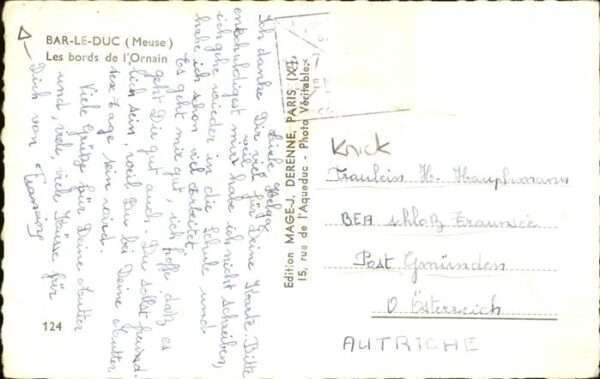 BAR-LE-DUC (Meuse)
Les bords de l'Ornain
Liebe Helga
Ich danke Dir viel für Deine Karte. Bitte
entschuldigst mir habe ich nicht schreiben, weil
ich gehe wieder in die Schule und
habe ich schon viel Arbeit.
Es geht mir gut, ich hoffe daß es
geht Die gut auch. Du solst
lich sein, weil Du bei Deine Mutter
tage sein wird.
Viele Grüße für Deine Mutter
und viele, viele Küsse für
Dich von
124
Edition MAGE-J. DERENNE, PARIS (XI)
15, rue de l'Aqueduc - Photo Véritable.
Knick
Fräulein H. Hauphmann
BEA schloß Traunsee
Post Gmünden
O Österreich
AUTRICHE